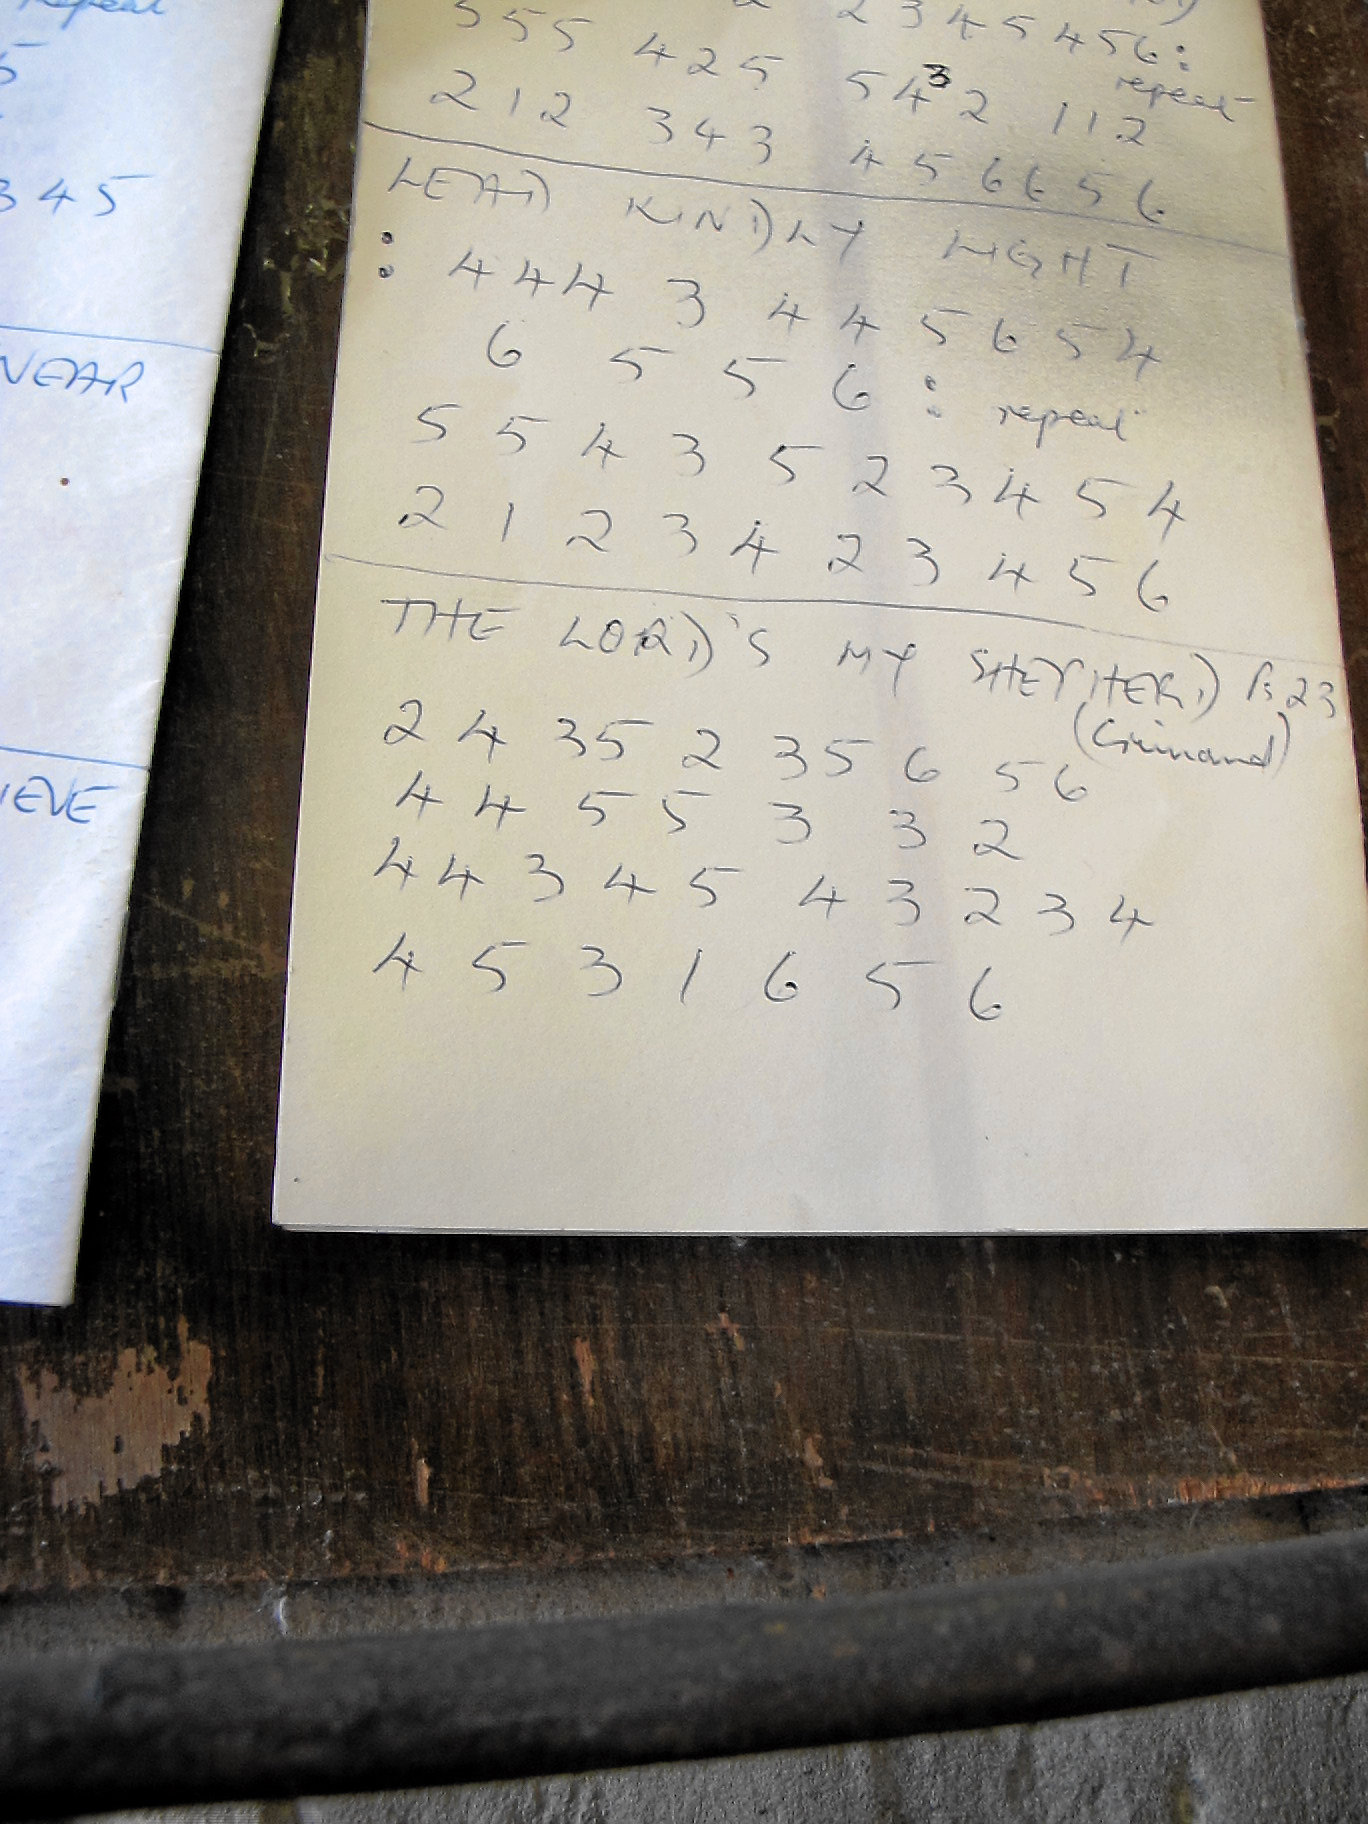 repeat
5
3 4 5
NEAR
IEVE
2 2 3 4 5 4 5 6 :
repeat
5 5 5 4 2 5 5 4 3 2 1 1 2
2 1 2 3 4 3 4 5 6 6 5 6
LEAD KINDLY LIGHT
: 4 4 4 3 4 4 5 6 5 4
6 5 5 6 : repeat
5 5 4 3 5 2 3 4 5 4
2 1 2 3 4 2 3 4 5 6
THE LORD'S MY SHEPHERD Ps 23
(Crimond)
2 4 35 2 35 6 56
4 4 5 5 3 3 2
4 4 3 4 5 4 3 2 3 4
4 5 3 1 6 5 6